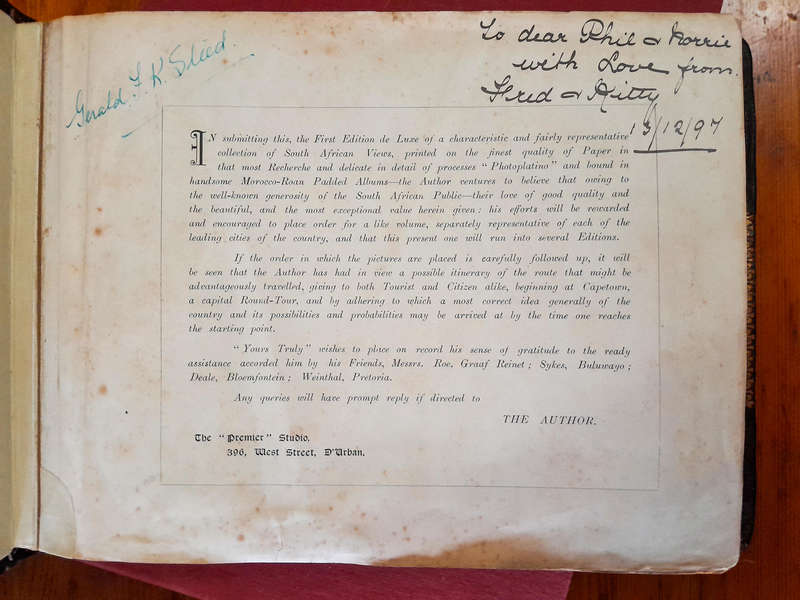 Gerald F. K. Slied.
To dear Phil & Norrie
with Love from
Fred & Kitty
13/12/97
IN submitting this, the First Edition de Luxe of a characteristic and fairly representative
collection of South African Views, printed on the finest quality of Paper in
that most Recherche and delicate in detail of processes “Photoplatino” and bound in
handsome Morocco-Roan Padded Albums—the Author ventures to believe that owing to
the well-known generosity of the South African Public—their love of good quality and
the beautiful, and the most exceptional value herein given: his efforts will be rewarded
and encouraged to place order for a like volume, separately representative of each of the
leading cities of the country, and that this present one will run into several Editions.
If the order in which the pictures are placed is carefully followed up, it will
be seen that the Author has had in view a possible itinerary of the route that might be
advantageously travelled, giving to both Tourist and Citizen alike, beginning at Capetown,
a capital Round-Tour, and by adhering to which a most correct idea generally of the
country and its possibilities and probabilities may be arrived at by the time one reaches
the starting point.
“Yours Truly” wishes to place on record his sense of gratitude to the ready
assistance accorded him by his Friends, Messrs. Roe, Graaf Reinet; Sykes, Buluwayo;
Deale, Bloemfontein; Weinthal, Pretoria.
Any queries will have prompt reply if directed to
THE AUTHOR.
The “Premier” Studio,
396, West Street, D'Urban.